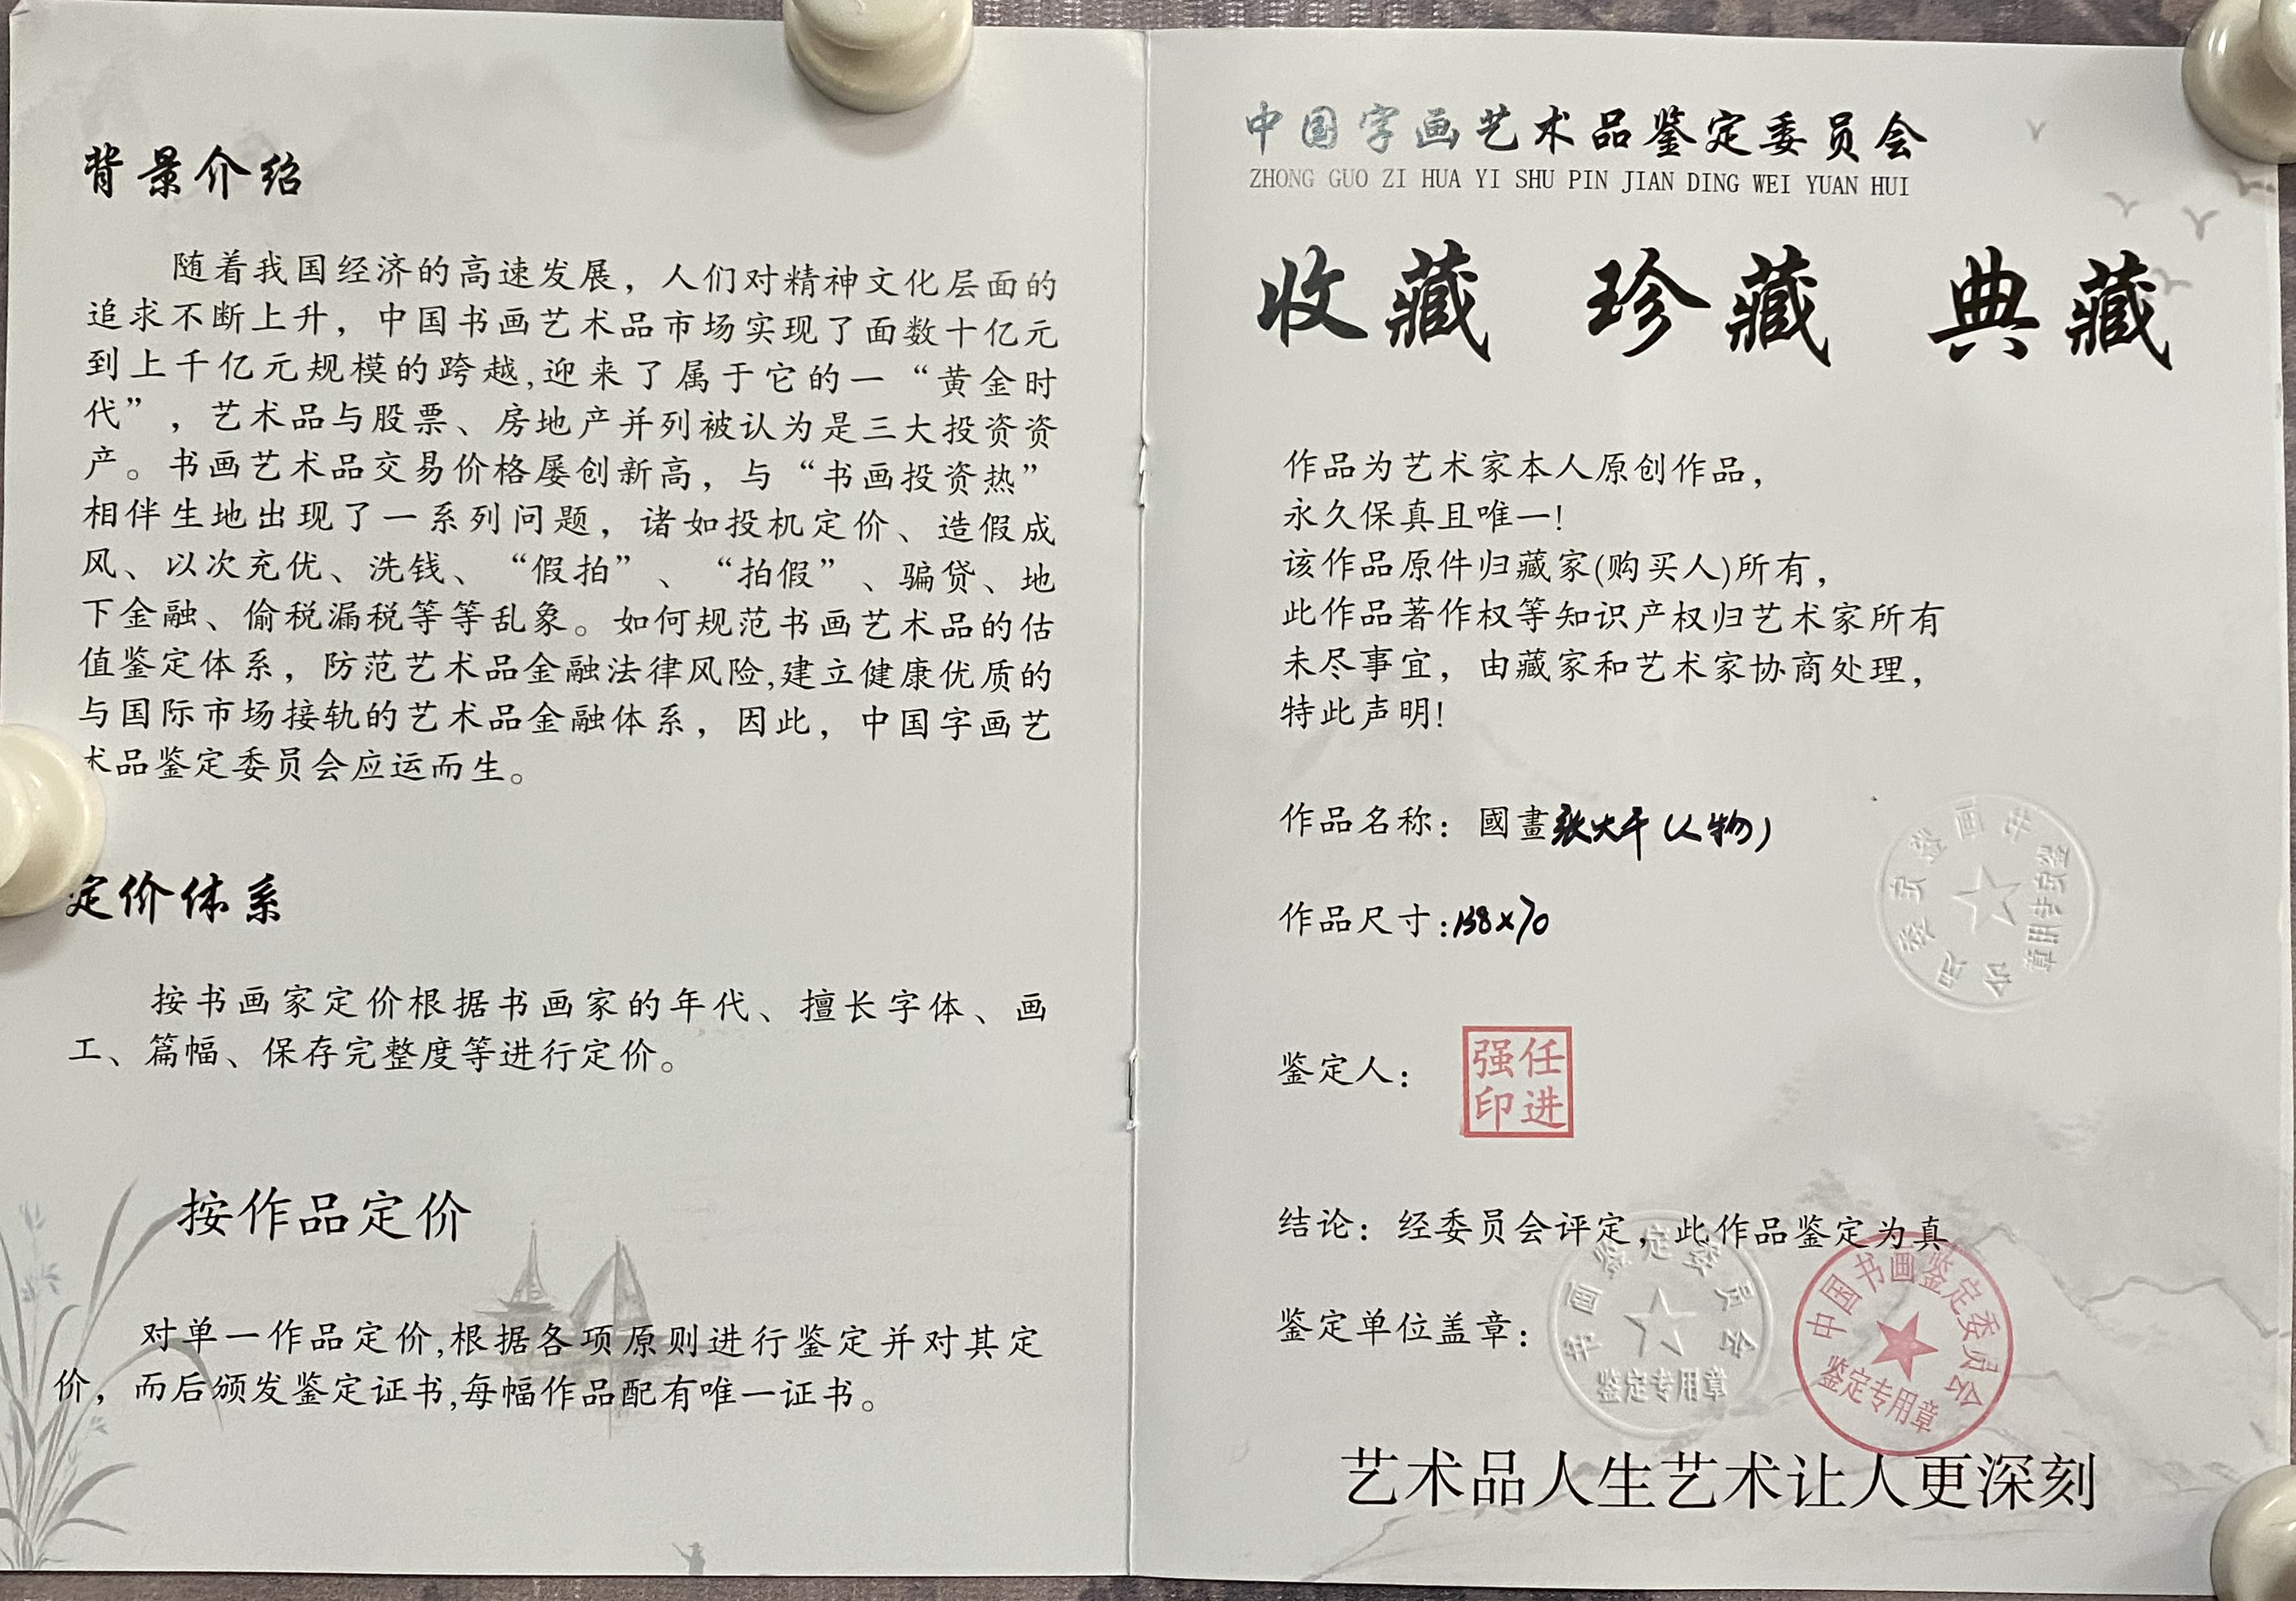 背景介绍
随着我国经济的高速发展，人们对精神文化层面的
追求不断上升，中国书画艺术品市场实现了面数十亿元
到上千亿元规模的跨越,迎来了属于它的一“黄金时
代”，艺术品与股票、房地产并列被认为是三大投资资
产。书画艺术品交易价格屡创新高，与“书画投资热”
相伴生地出现了一系列问题，诸如投机定价、造假成
风、以次充优、洗钱、“假拍”、“拍假”、骗贷、地
下金融、偷税漏税等等乱象。如何规范书画艺术品的估
值鉴定体系，防范艺术品金融法律风险,建立健康优质的
与国际市场接轨的艺术品金融体系，因此，中国字画艺
术品鉴定委员会应运而生。
定价体系
按书画家定价根据书画家的年代、擅长字体、画
工、篇幅、保存完整度等进行定价。
按作品定价
对单一作品定价,根据各项原则进行鉴定并对其定
价，而后颁发鉴定证书,每幅作品配有唯一证书。
中国字画艺术品鉴定委员会
ZHONG GUO ZI HUA YI SHU PIN JIAN DING WEI YUAN HUI
收藏 珍藏 典藏
作品为艺术家本人原创作品，
永久保真且唯一!
该作品原件归藏家(购买人)所有，
此作品著作权等知识产权归艺术家所有
未尽事宜，由藏家和艺术家协商处理，
特此声明!
作品名称：國畫张大千（人物）
作品尺寸:138×70
书画鉴定委员会
鉴定专用章
鉴定人：
任进
强印
结论：经委员会评定，此作品鉴定为真
鉴定单位盖章：
书画鉴定委员会
鉴定专用章
中国书画鉴定委员会
鉴定专用章
艺术品人生艺术让人更深刻